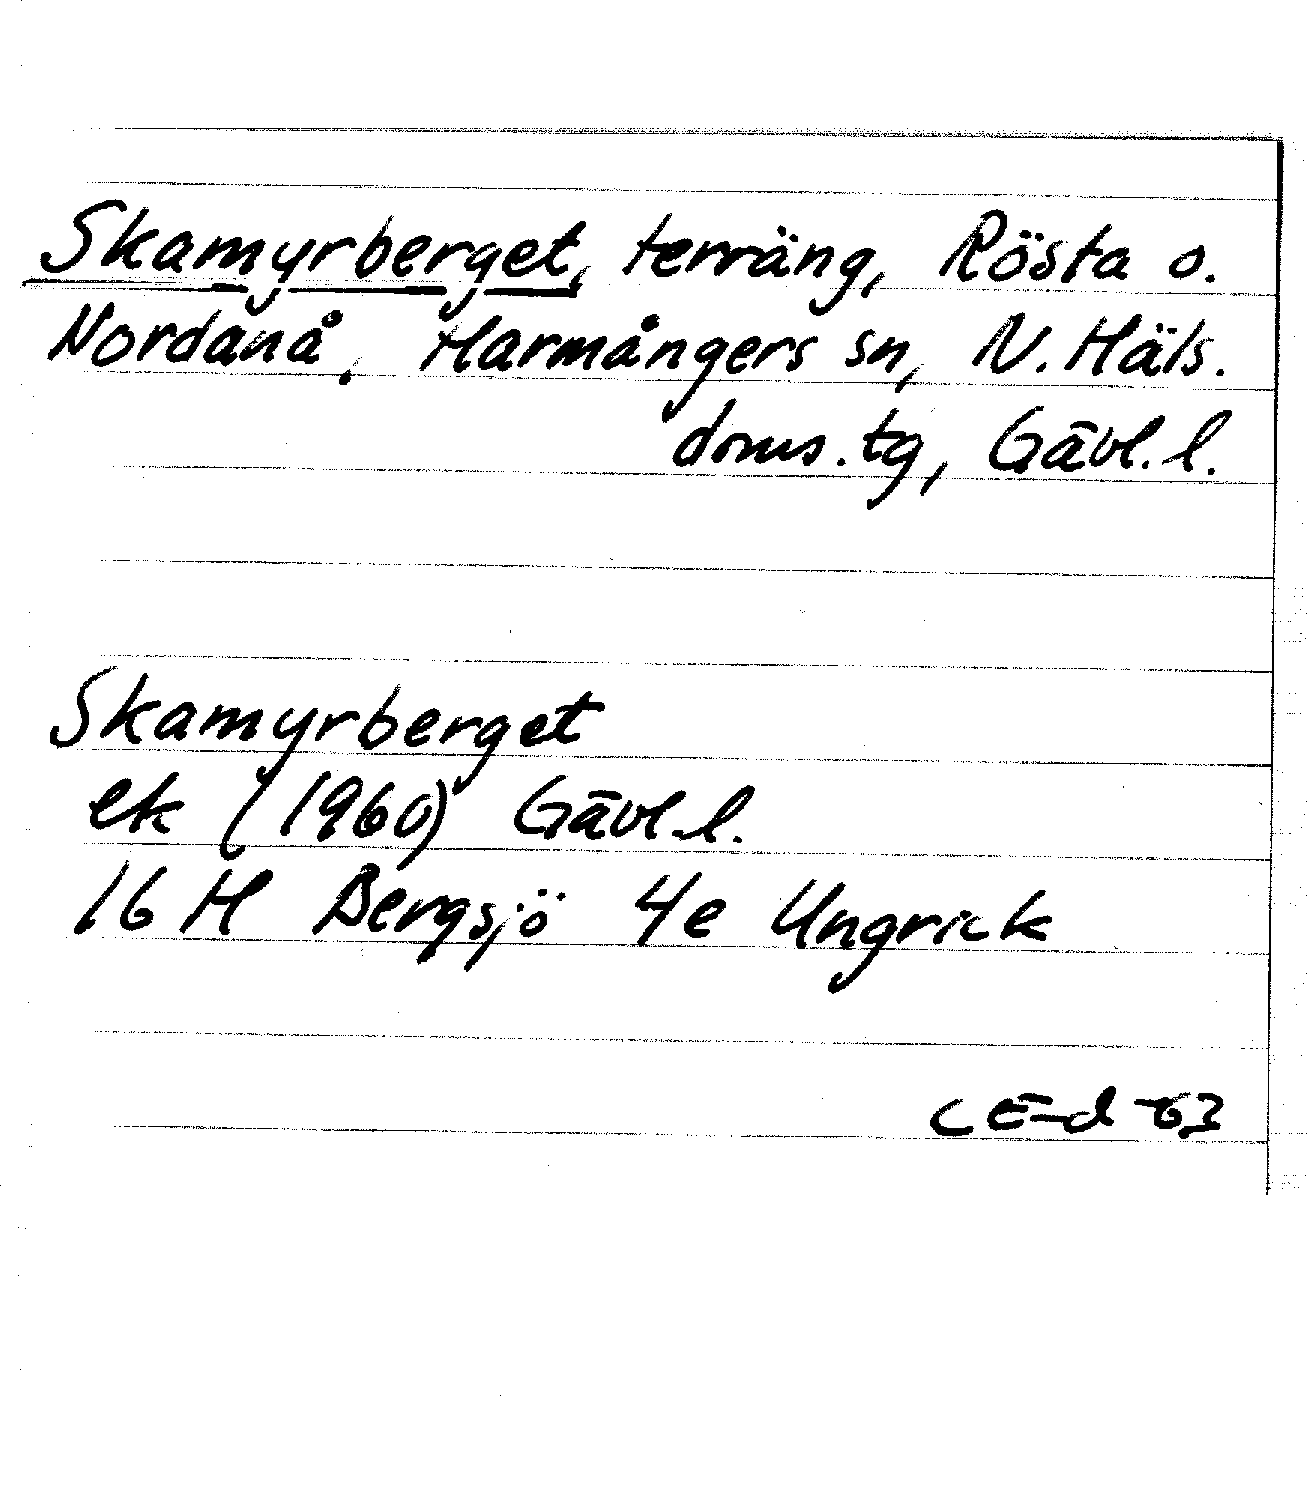 Skamyrberget, terräng, Rösta o.
Nordanå, Harmångers sn, N. Häls.
doms.tg, Gävl. l.
Skamyrberget
ek (1960) Gävl. l.
16 H Bergsjö 4e Ungrick
CE-d -63